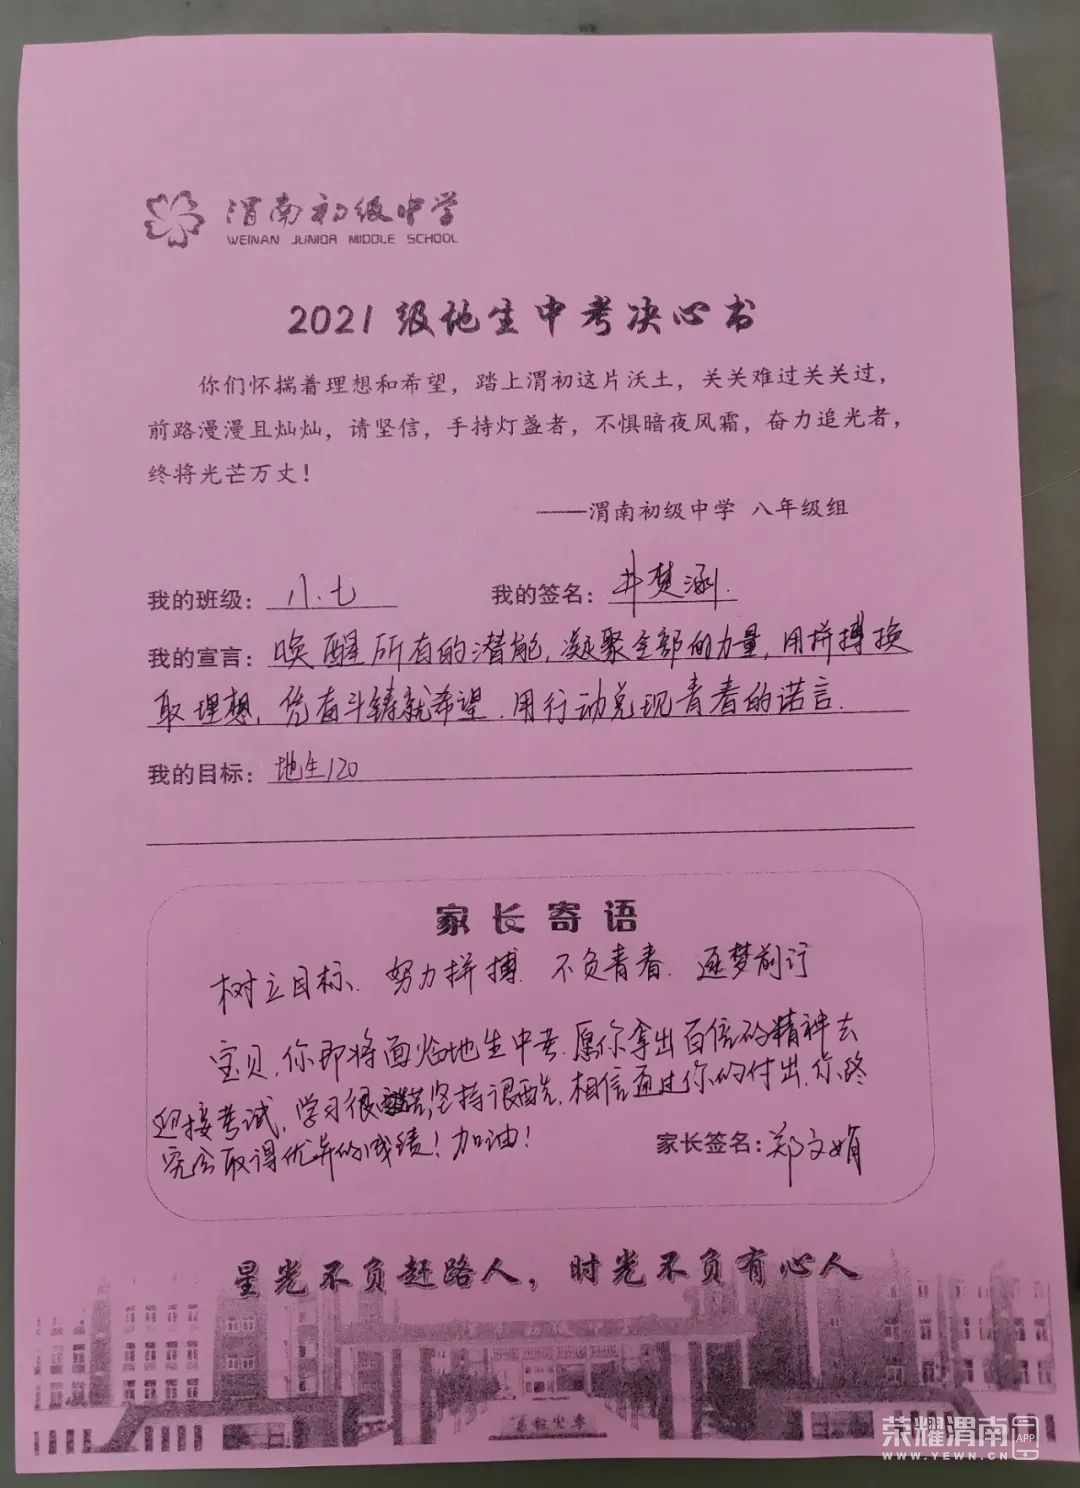 渭南初级中学
WEINAN JUNIOR MIDDLE SCHOOL
2021级地生中考决心书
你们怀揣着理想和希望，踏上渭初这片沃土，关关难过关关过，
前路漫漫且灿灿，请坚信，手持灯盏者，不惧暗夜风霜，奋力追光者，
终将光芒万丈！
——渭南初级中学 八年级组
我的班级：八.七 我的签名：井梦涵.
我的宣言：唤醒所有的潜能,凝聚全部的力量,用拼搏换
取理想,凭奋斗铸就希望.用行动兑现青春的诺言.
我的目标：地生120
家长寄语
树立目标.努力拼搏.不负青春.逐梦前行
宝贝,你即将面临地生中考.愿你拿出百倍的精神去
迎接考试,学习很苦,坚持很酷,相信通过你的付出,你终
究会取得优异的成绩！加油！
家长签名：郑文娟
星光不负赶路人，时光不负有心人
荣耀渭南APP
WWW.YEWN.CN